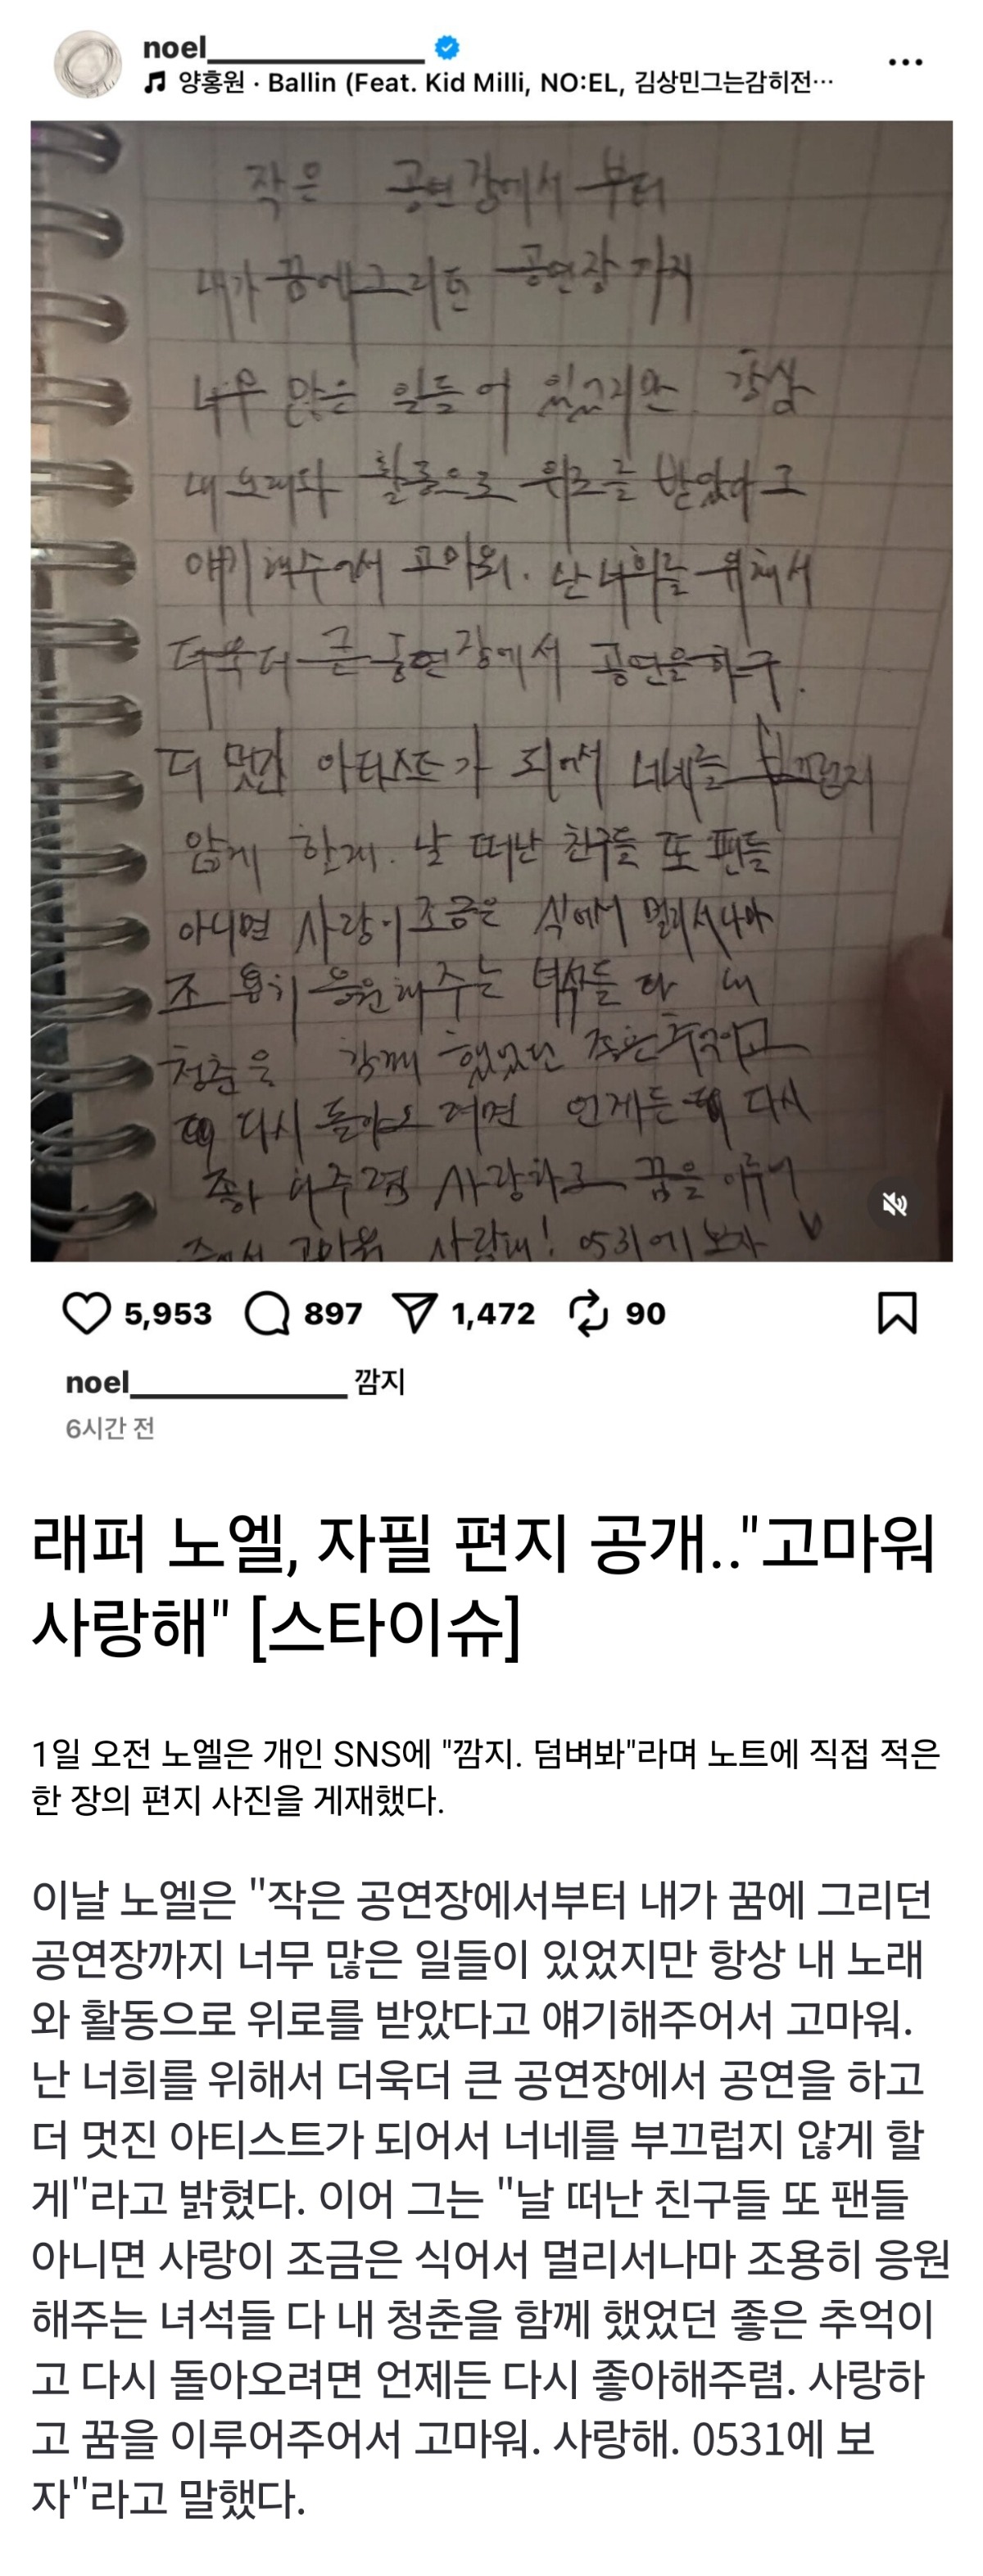 noel_______________
양홍원 · Ballin (Feat. Kid Milli, NO:EL, 김상민그는감히전…
작은 공연장에서부터
내가 꿈에그리던 공연장 까지
너무 많은 일들이 있었지만 항상
내 노래와 활동으로 위로를 받았다고
얘기해주어서 고마워. 난 너희를 위해서
더욱더 큰 공연장에서 공연을하구.
더 멋진 아티스트가 되어서 너네를 부끄럽지
않게 할게. 날 떠난 친구들 또 팬들
아니면 사랑이 조금은 식어서 멀리서나마
조용히 응원해주는 녀석들 다 내
청춘을 함께 했었던 좋은 추억이고
다시 돌아오려면 언제든 다시
좋아해주렴 사랑하고 꿈을 이루어
주어서 고마워 사랑해! 0531에 보자
5,953 897 1,472 90
noel_______________ 깜지
6시간 전
래퍼 노엘, 자필 편지 공개.."고마워
사랑해" [스타이슈]
1일 오전 노엘은 개인 SNS에 "깜지. 덤벼봐"라며 노트에 직접 적은
한 장의 편지 사진을 게재했다.
이날 노엘은 "작은 공연장에서부터 내가 꿈에 그리던
공연장까지 너무 많은 일들이 있었지만 항상 내 노래
와 활동으로 위로를 받았다고 얘기해주어서 고마워.
난 너희를 위해서 더욱더 큰 공연장에서 공연을 하고
더 멋진 아티스트가 되어서 너네를 부끄럽지 않게 할
게"라고 밝혔다. 이어 그는 "날 떠난 친구들 또 팬들
아니면 사랑이 조금은 식어서 멀리서나마 조용히 응원
해주는 녀석들 다 내 청춘을 함께 했었던 좋은 추억이
고 다시 돌아오려면 언제든 다시 좋아해주렴. 사랑하
고 꿈을 이루어주어서 고마워. 사랑해. 0531에 보
자"라고 말했다.